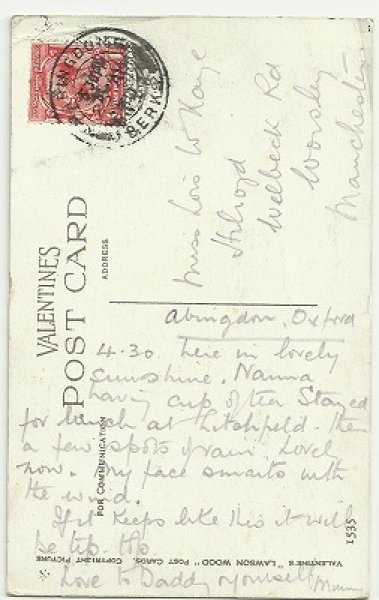 ABINGDON
BERKS
VALENTINE'S
POST CARD
ADDRESS
FOR COMMUNICATION
Miss Lois W Kaye
Welbeck Rd
Worsley
Manchester
Abingdon. Oxford
4.30. here in lovely
sunshine. Nanna
having cup of tea Stayed
for lunch at Litchfield. then
a few spots of rain. Lovely
now. My face smarts with
the wind.
If it keeps like this it will
be tip. top.
Love to Daddy & yourself Mummy
VALENTINE'S "LAWSON WOOD" POST CARDS. COPYRIGHT PICTURE
1535